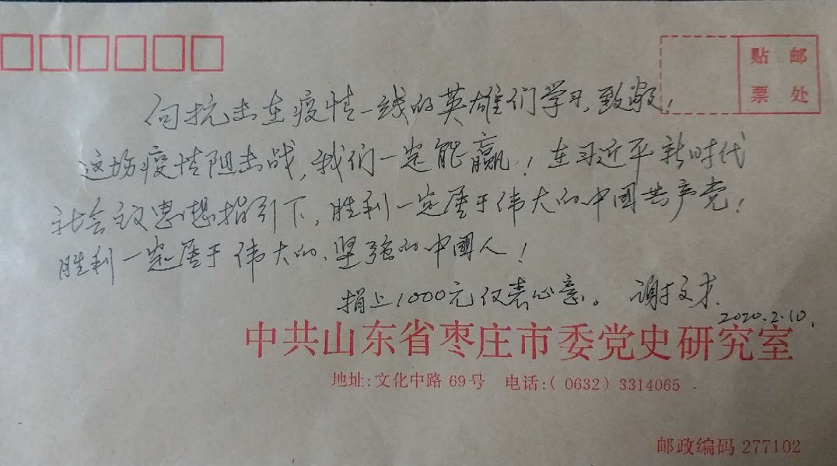 贴 邮
票 处
向抗击在疫情一线的英雄们学习,致敬!
这场疫情阻击战,我们一定能赢!在习近平新时代
社会主义思想指引下,胜利一定属于伟大的中國共产党!
胜利一定属于伟大的、坚强的中國人!
捐上1000元仅表心意。 谢文才
2020.2.10.
中共山东省枣庄市委党史研究室
地址:文化中路 69号 电话:(0632)3314065
邮政编码 277102